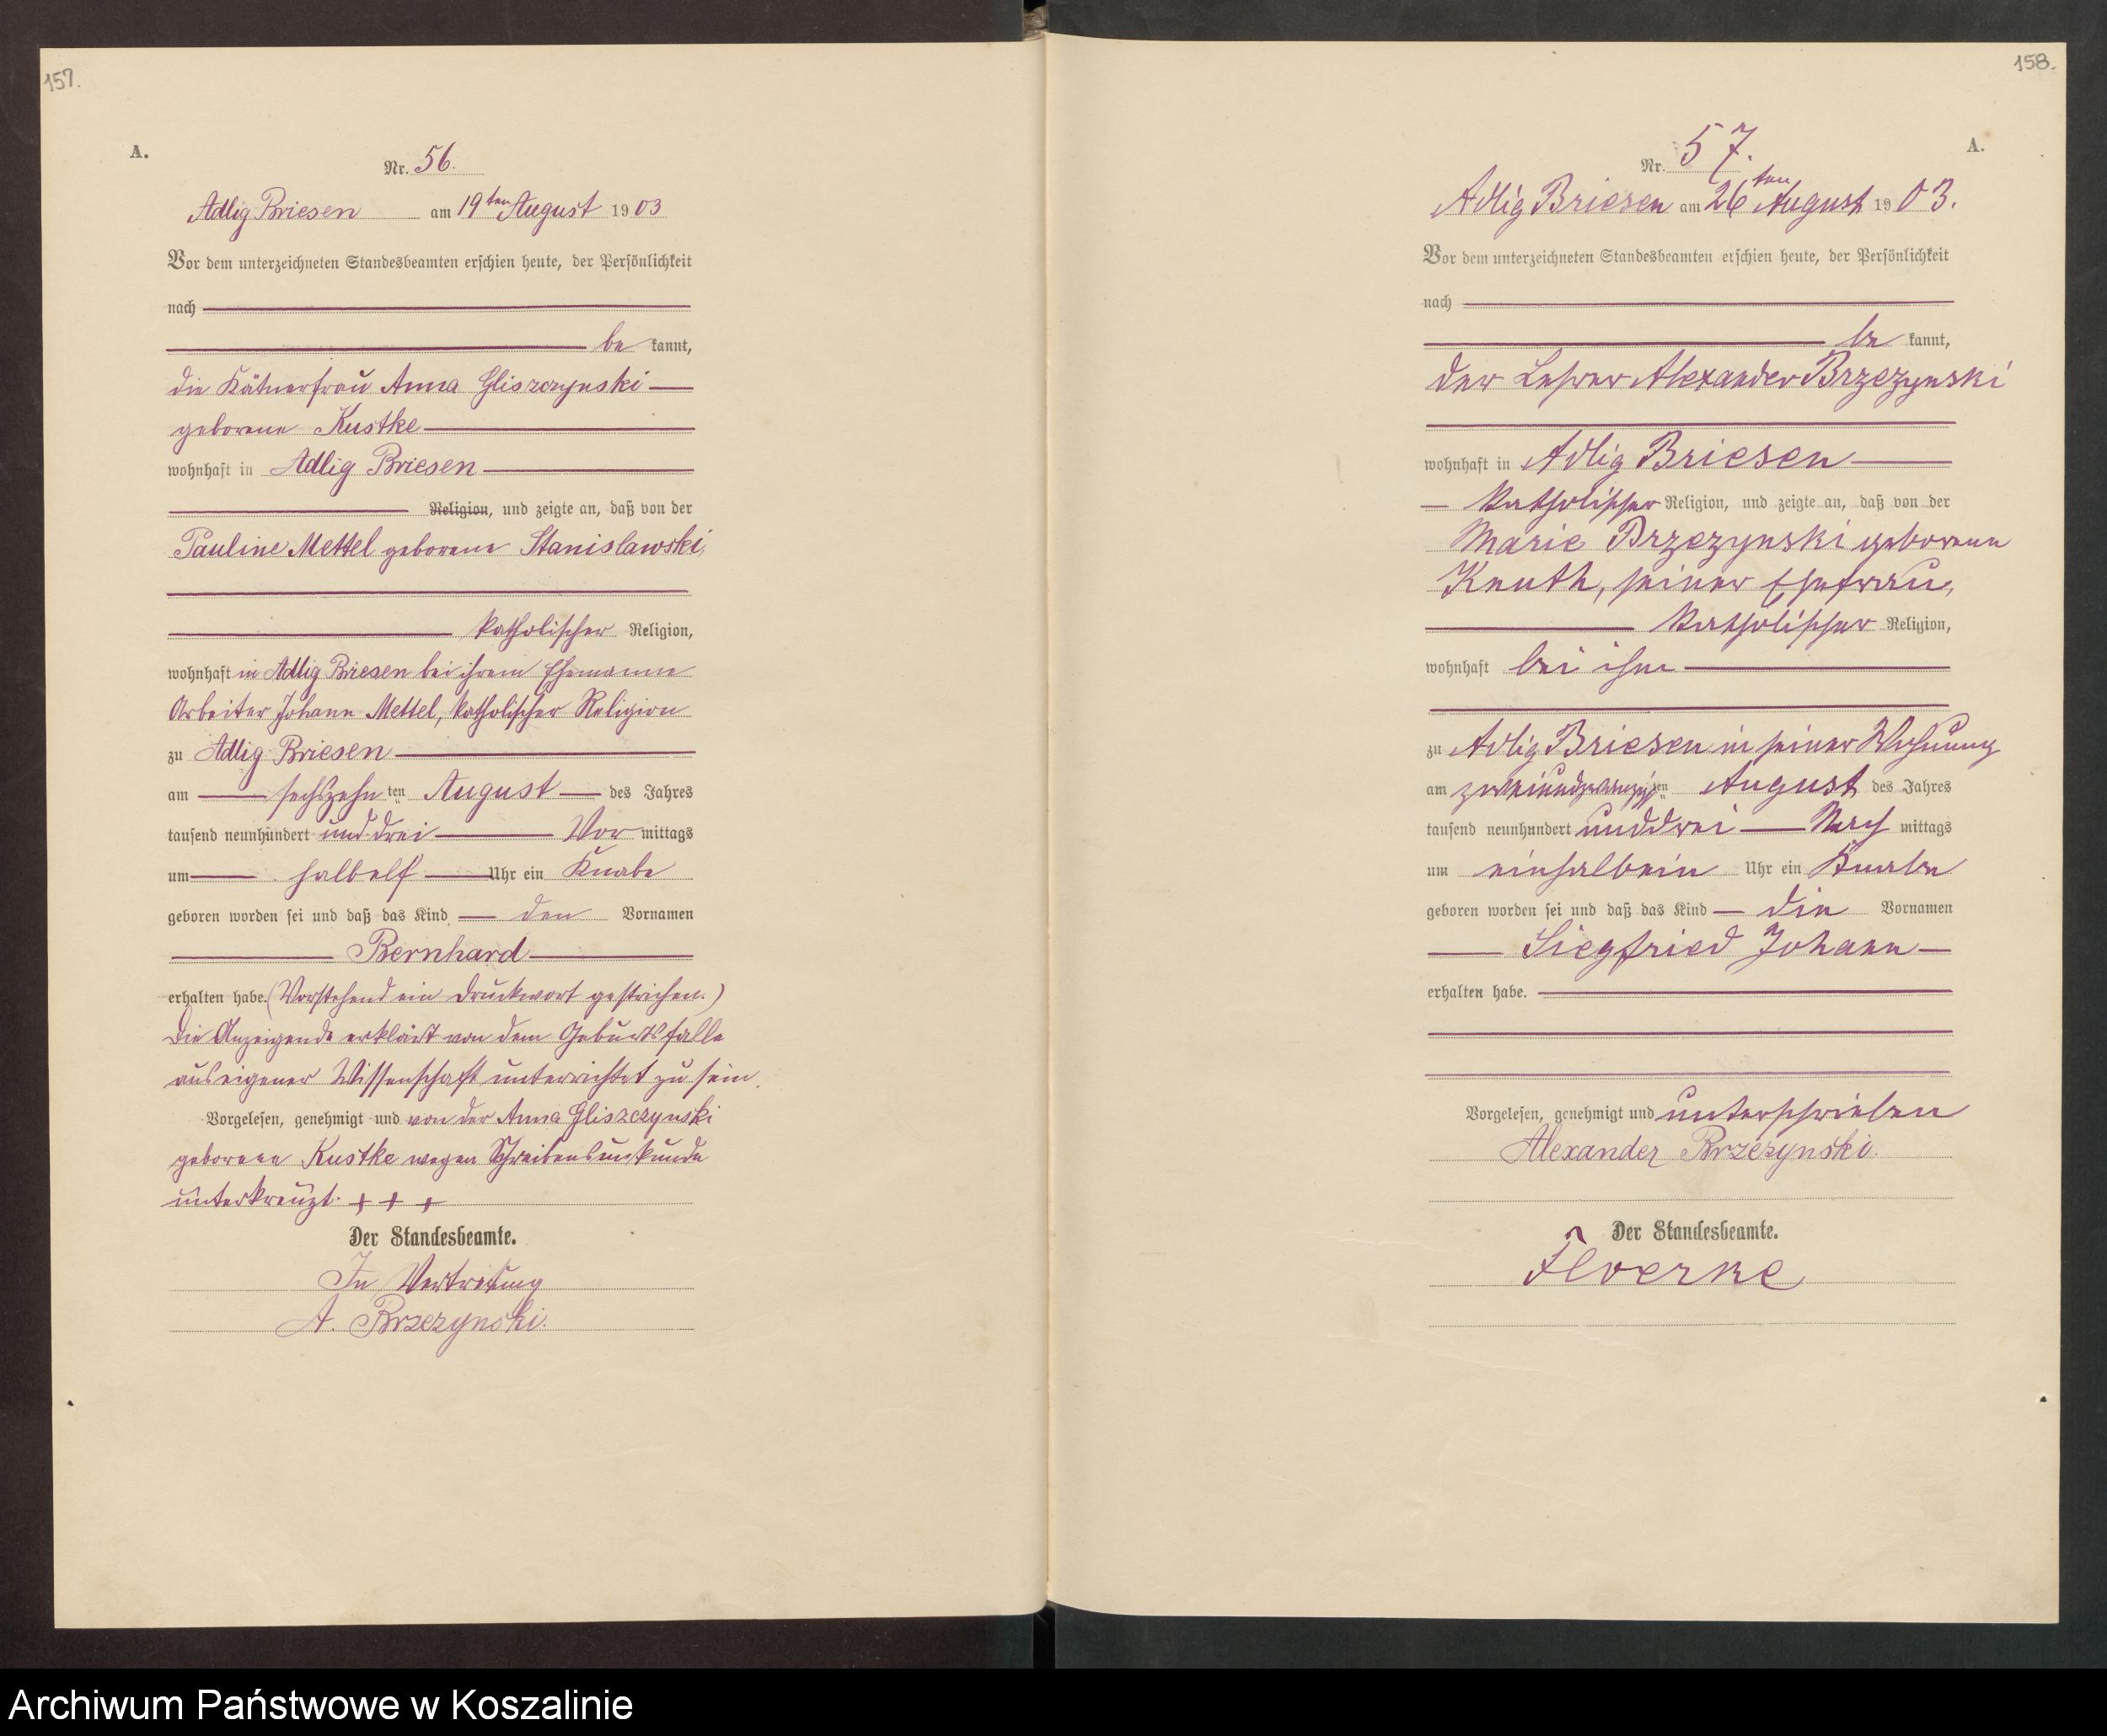 157.
A.
Nr. 56.
Adlig Briesen am 19ten August 1903
Vor dem unterzeichneten Standesbeamten erschien heute, der Persönlichkeit
nach
be kannt,
die Kätnerfrau Anna Gliszczynski
geborene Kustke
wohnhaft in Adlig Briesen
Religion, und zeigte an, daß von der
Pauline Mettel geborene Stanislawski,
katholischer Religion,
wohnhaft in Adlig Briesen bei ihrem Ehemanne
Arbeiter Johann Mettel, katholischer Religion
zu Adlig Briesen
am sechszehn ten August des Jahres
tausend neunhundert und drei Vor mittags
um halb elf Uhr ein Knabe
geboren worden sei und daß das Kind den Vornamen
Bernhard
erhalten habe. (Vorstehend ein Druckwort gestrichen.)
Die Anzeigende erklärt von dem Geburtsfalle
aus eigener Wissenschaft unterrichtet zu sein.
Vorgelesen, genehmigt und von der Anna Gliszczynski
geborene Kustke wegen Schreibensunkunde
unterkreuzt. + + +
Der Standesbeamte.
In Vertretung
A. Brzezynski.
158.
A.
Nr. 57.
Adlig Briesen am 26ten August 1903.
Vor dem unterzeichneten Standesbeamten erschien heute, der Persönlichkeit
nach
be kannt,
der Lehrer Alexander Brzezynski
wohnhaft in Adlig Briesen
katholischer Religion, und zeigte an, daß von der
Marie Brzezynski geborene
Knuth, seiner Ehefrau,
katholischer Religion,
wohnhaft bei ihm
zu Adlig Briesen in seiner Wohnung
am zweiundzwanzigsten August des Jahres
tausend neunhundert unddrei Nach mittags
um einhalbein Uhr ein Knabe
geboren worden sei und daß das Kind die Vornamen
Siegfried Johann
erhalten habe.
Vorgelesen, genehmigt und unterschrieben
Alexander Brzezynski.
Der Standesbeamte.
Archiwum Państwowe w Koszalinie